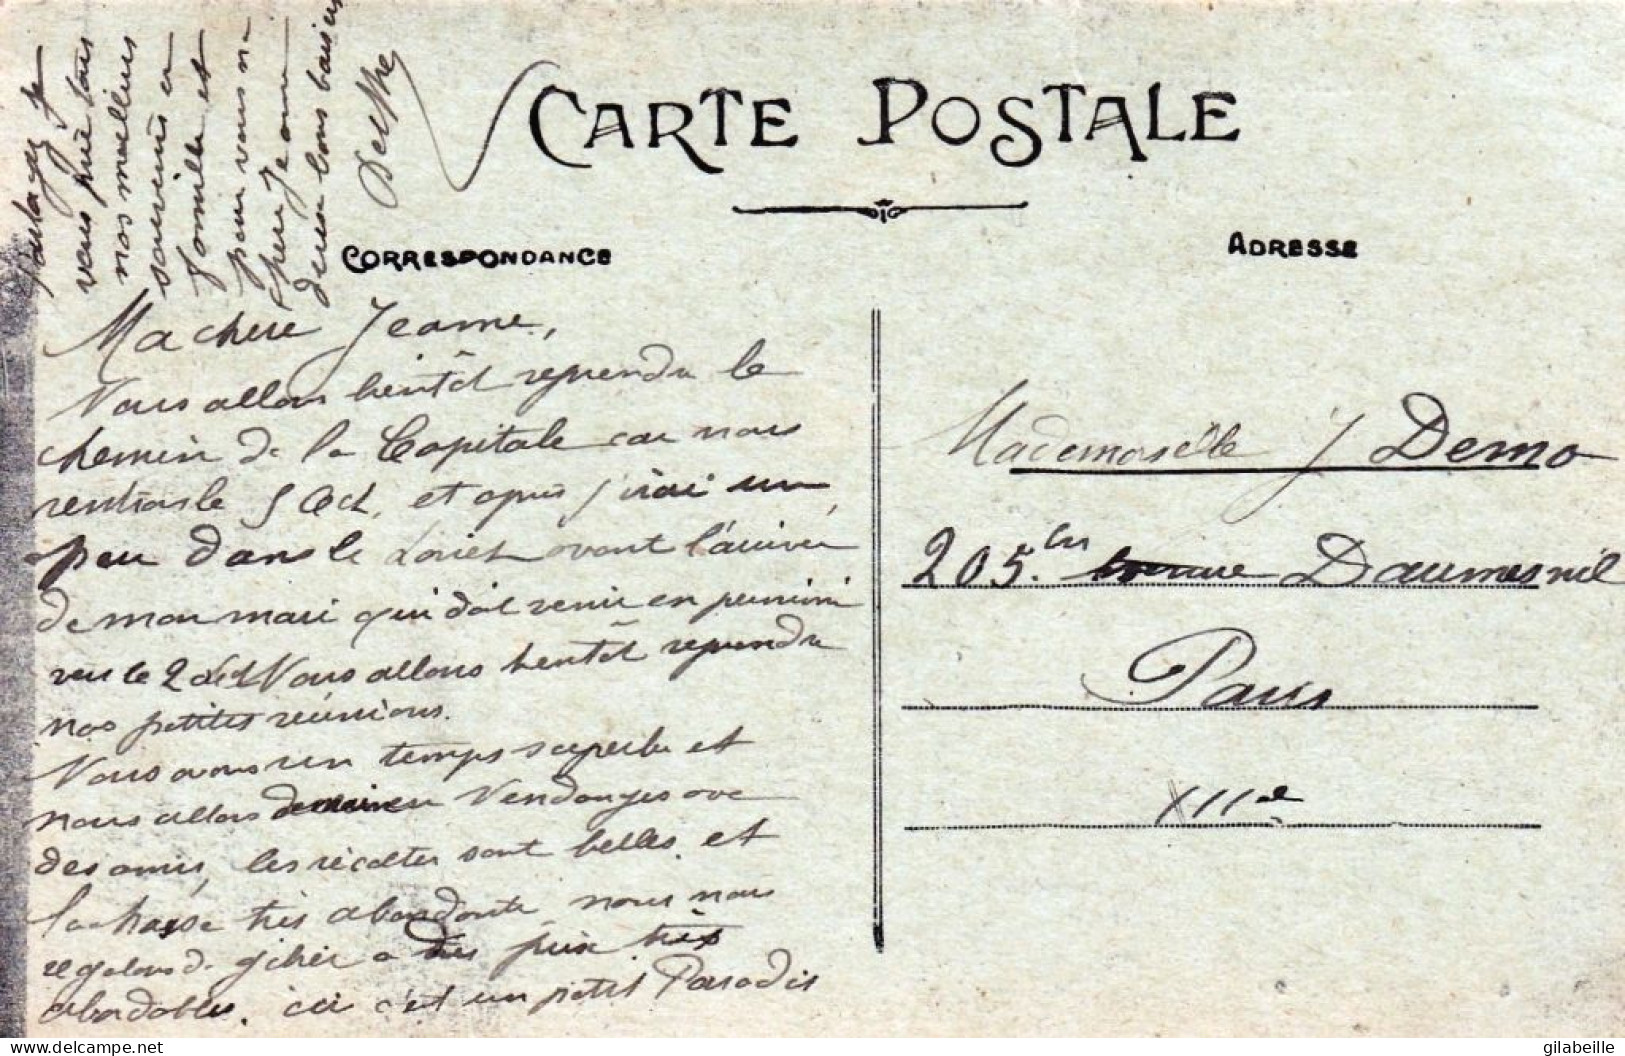 CARTE POSTALE
CORRESPONDANCE
ADRESSE
Ma chere Jeanne,
Nous allons bientôt reprendre le
chemin de la Capitale car nous
rentrons le 5 Oct. et apres j'irai un
peu dans le Loiret avant l'arrivée
de mon mari qui doit venir en permission
vers le 2 Nous allons bientôt reprendre
nos petites réunions.
Nous avons un temps superbe et
nous allons demain en Vendanges avec
des amis, les récoltes sont belles, et
la chasse très abondante nous nous
regalons de gibier a des prix très
abordables. ici c'est un petit Paradis
Partagez Je
vous prie tous
nos meilleurs
souvenirs en
famille et
pour vous ma
chere Jeanne
deux bons baisers
Mademoiselle J Demo
205 bis avenue Daumesnil
Paris
XIIe
gilabeille
www.delcampe.net